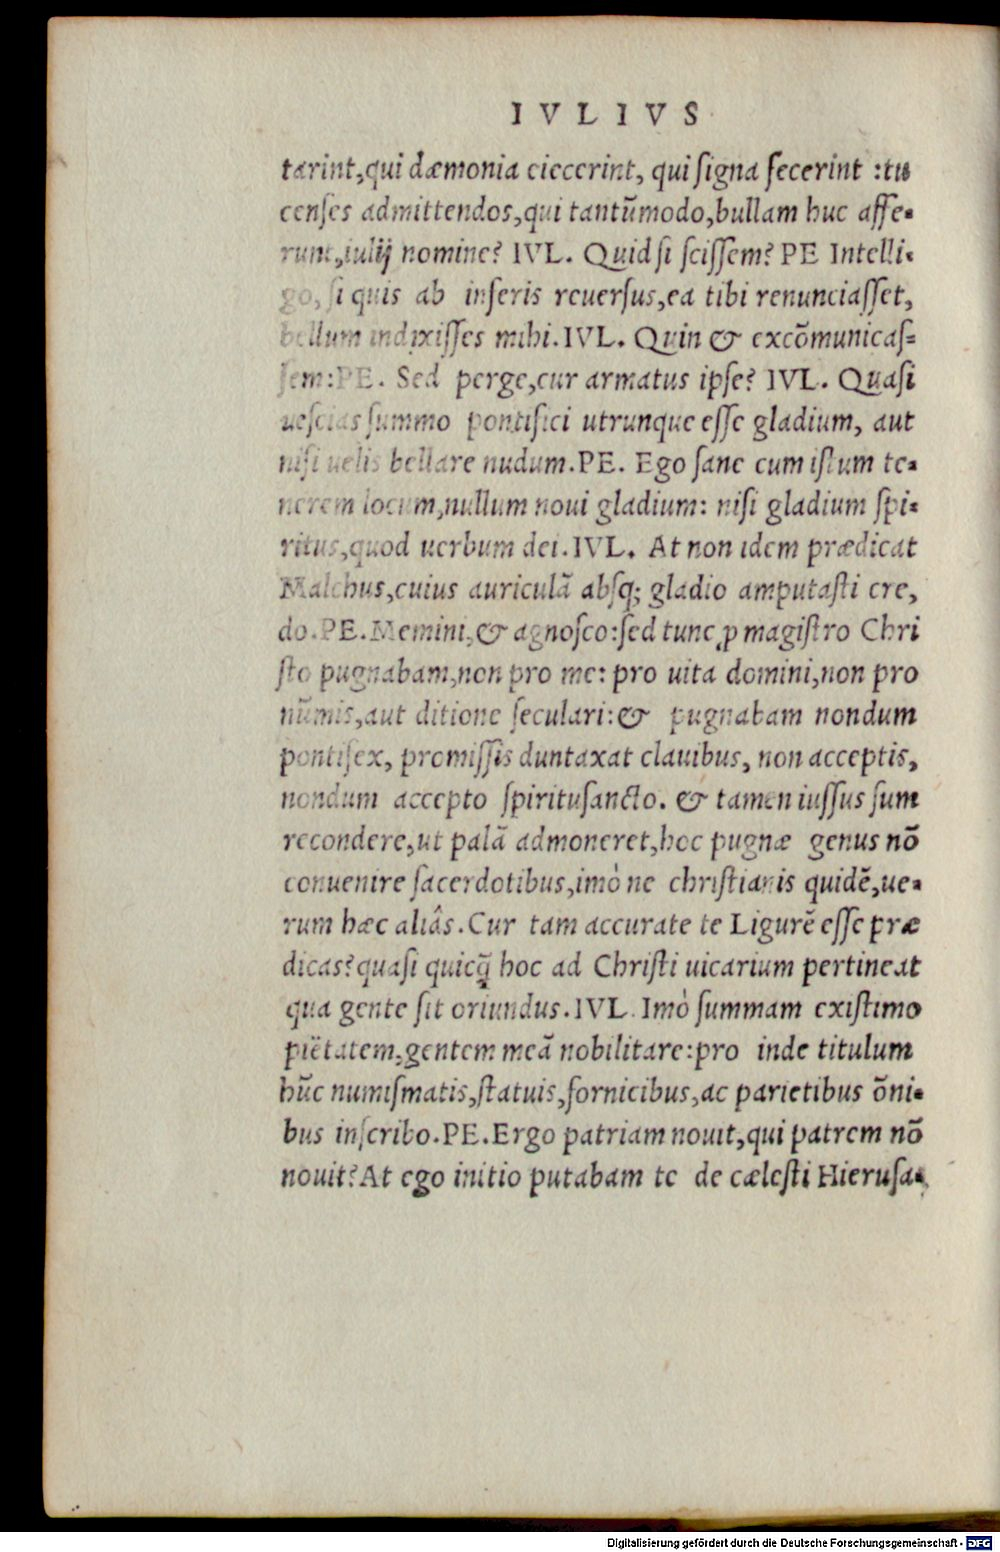 IVLIVS
tarint,qui dæmonia eiecerint, qui ſigna fecerint :tu
cenſes admittendos,qui tantūmodo,bullam huc affe-
runt,iulij nomine? IVL. Quid ſi ſciſſem? PE Intelli-
go, ſi quis ab inferis reuerſus,ea tibi renunciaſſet,
bellum indixiſſes mihi.IVL. Quin & excōmunicaſ-
ſem:PE. Sed perge,cur armatus ipſe? IVL. Quaſi
neſcias ſummo pontifici utrunque eſſe gladium, aut
niſi uelis bellare nudum.PE. Ego ſane cum iſtum te-
nerem locum,nullum noui gladium: niſi gladium ſpi-
ritus,quod uerbum dei.IVL. At non idem prædicat
Malchus,cuius auriculā abſq; gladio amputaſti cre,
do.PE.Memini,& agnoſco:ſed tunc ꝓ magiſtro Chri
ſto pugnabam,non pro me: pro uita domini,non pro
nūmis,aut ditione ſeculari:& pugnabam nondum
pontifex, promiſſis duntaxat clauibus, non acceptis,
nondum accepto ſpirituſancto. & tamen iuſſus ſum
recondere,ut palā admoneret,hoc pugnæ genus nō
conuenire ſacerdotibus,imò ne chriſtianis quidē,ue-
rum hæc aliâs.Cur tam accurate te Ligurē eſſe præ
dicas?quaſi quicq̃ hoc ad Chriſti uicarium pertineat
qua gente ſit oriundus.IVL. Imò ſummam exiſtimo
pietatem,gentem meā nobilitare:pro inde titulum
hūc numiſmatis,ſtatuis,fornicibus,ac parietibus ōni-
bus inſcribo.PE.Ergo patriam nouit,qui patrem nō
nouit?At ego initio putabam te de cæleſti Hieruſa-
Digitalisierung gefördert durch die Deutsche Forschungsgemeinschaft - DFG